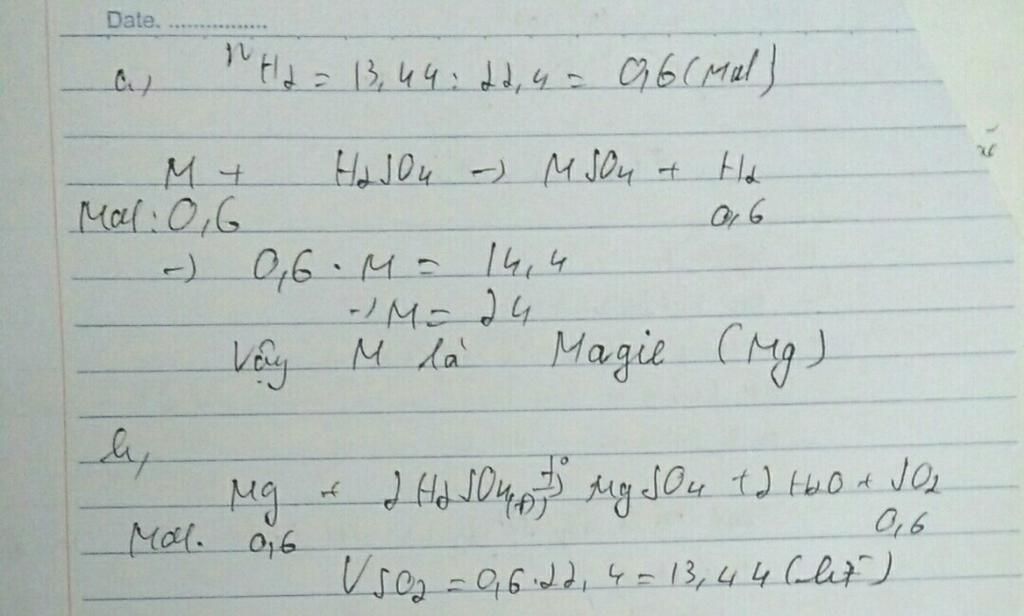 Date. ................
a, nH2 = 13,44 : 22,4 = 0,6 (mol)
M + H2SO4 -> MSO4 + H2
Mol: 0,6 0,6
-> 0,6 . M = 14,4
-> M = 24
Vậy M là Magie (Mg)
b,
Mg + 2H2SO4(đ) t°-> MgSO4 + 2H2O + SO2
Mol. 0,6 0,6
VSO2 = 0,6.22,4 = 13,44 (lít)